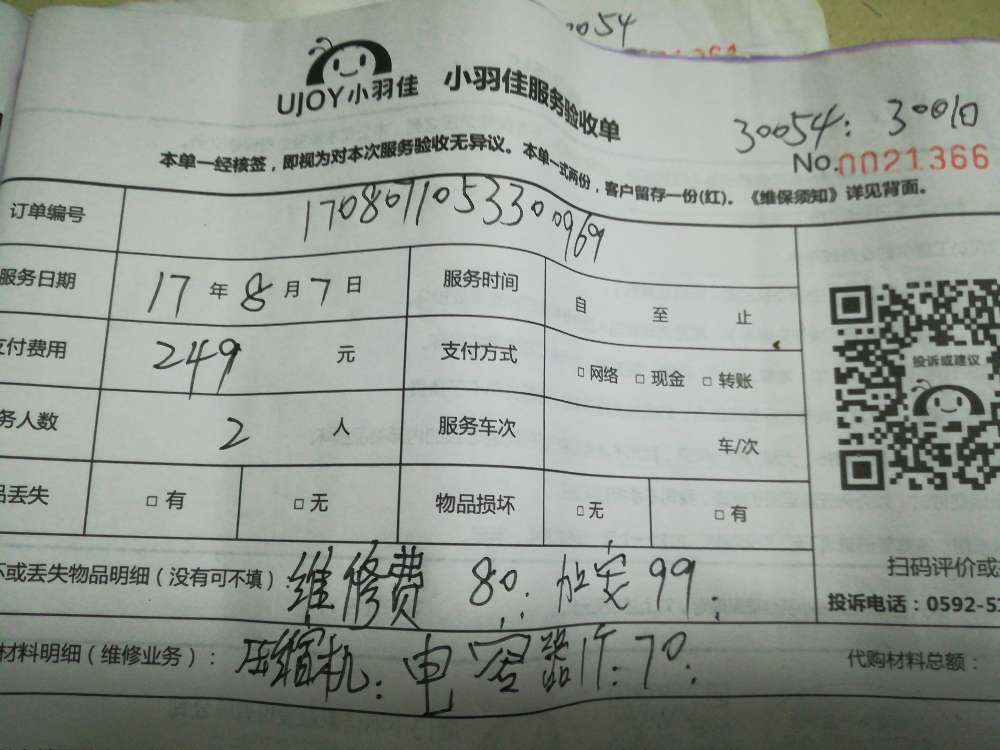 30054
UJOY小羽佳 小羽佳服务验收单
30054: 30010
No.0021366
本单一经核签，即视为对本次服务验收无异议。本单一式两份，客户留存一份(红)。《维保须知》详见背面。
订单编号 170807110533300969
服务日期 17 年 8 月 7 日 服务时间 自 至 止
支付费用 249 元 支付方式 □网络 □现金 □转账
务人数 2 人 服务车次 车/次
品丢失 □有 □无 物品损坏 □无 □有
投诉或建议
坏或丢失物品明细（没有可不填）: 维修费 80: 加氟99:
扫码评价或
投诉电话：0592-5
材料明细（维修业务）: 压缩机: 电容器1个: 70:
代购材料总额：